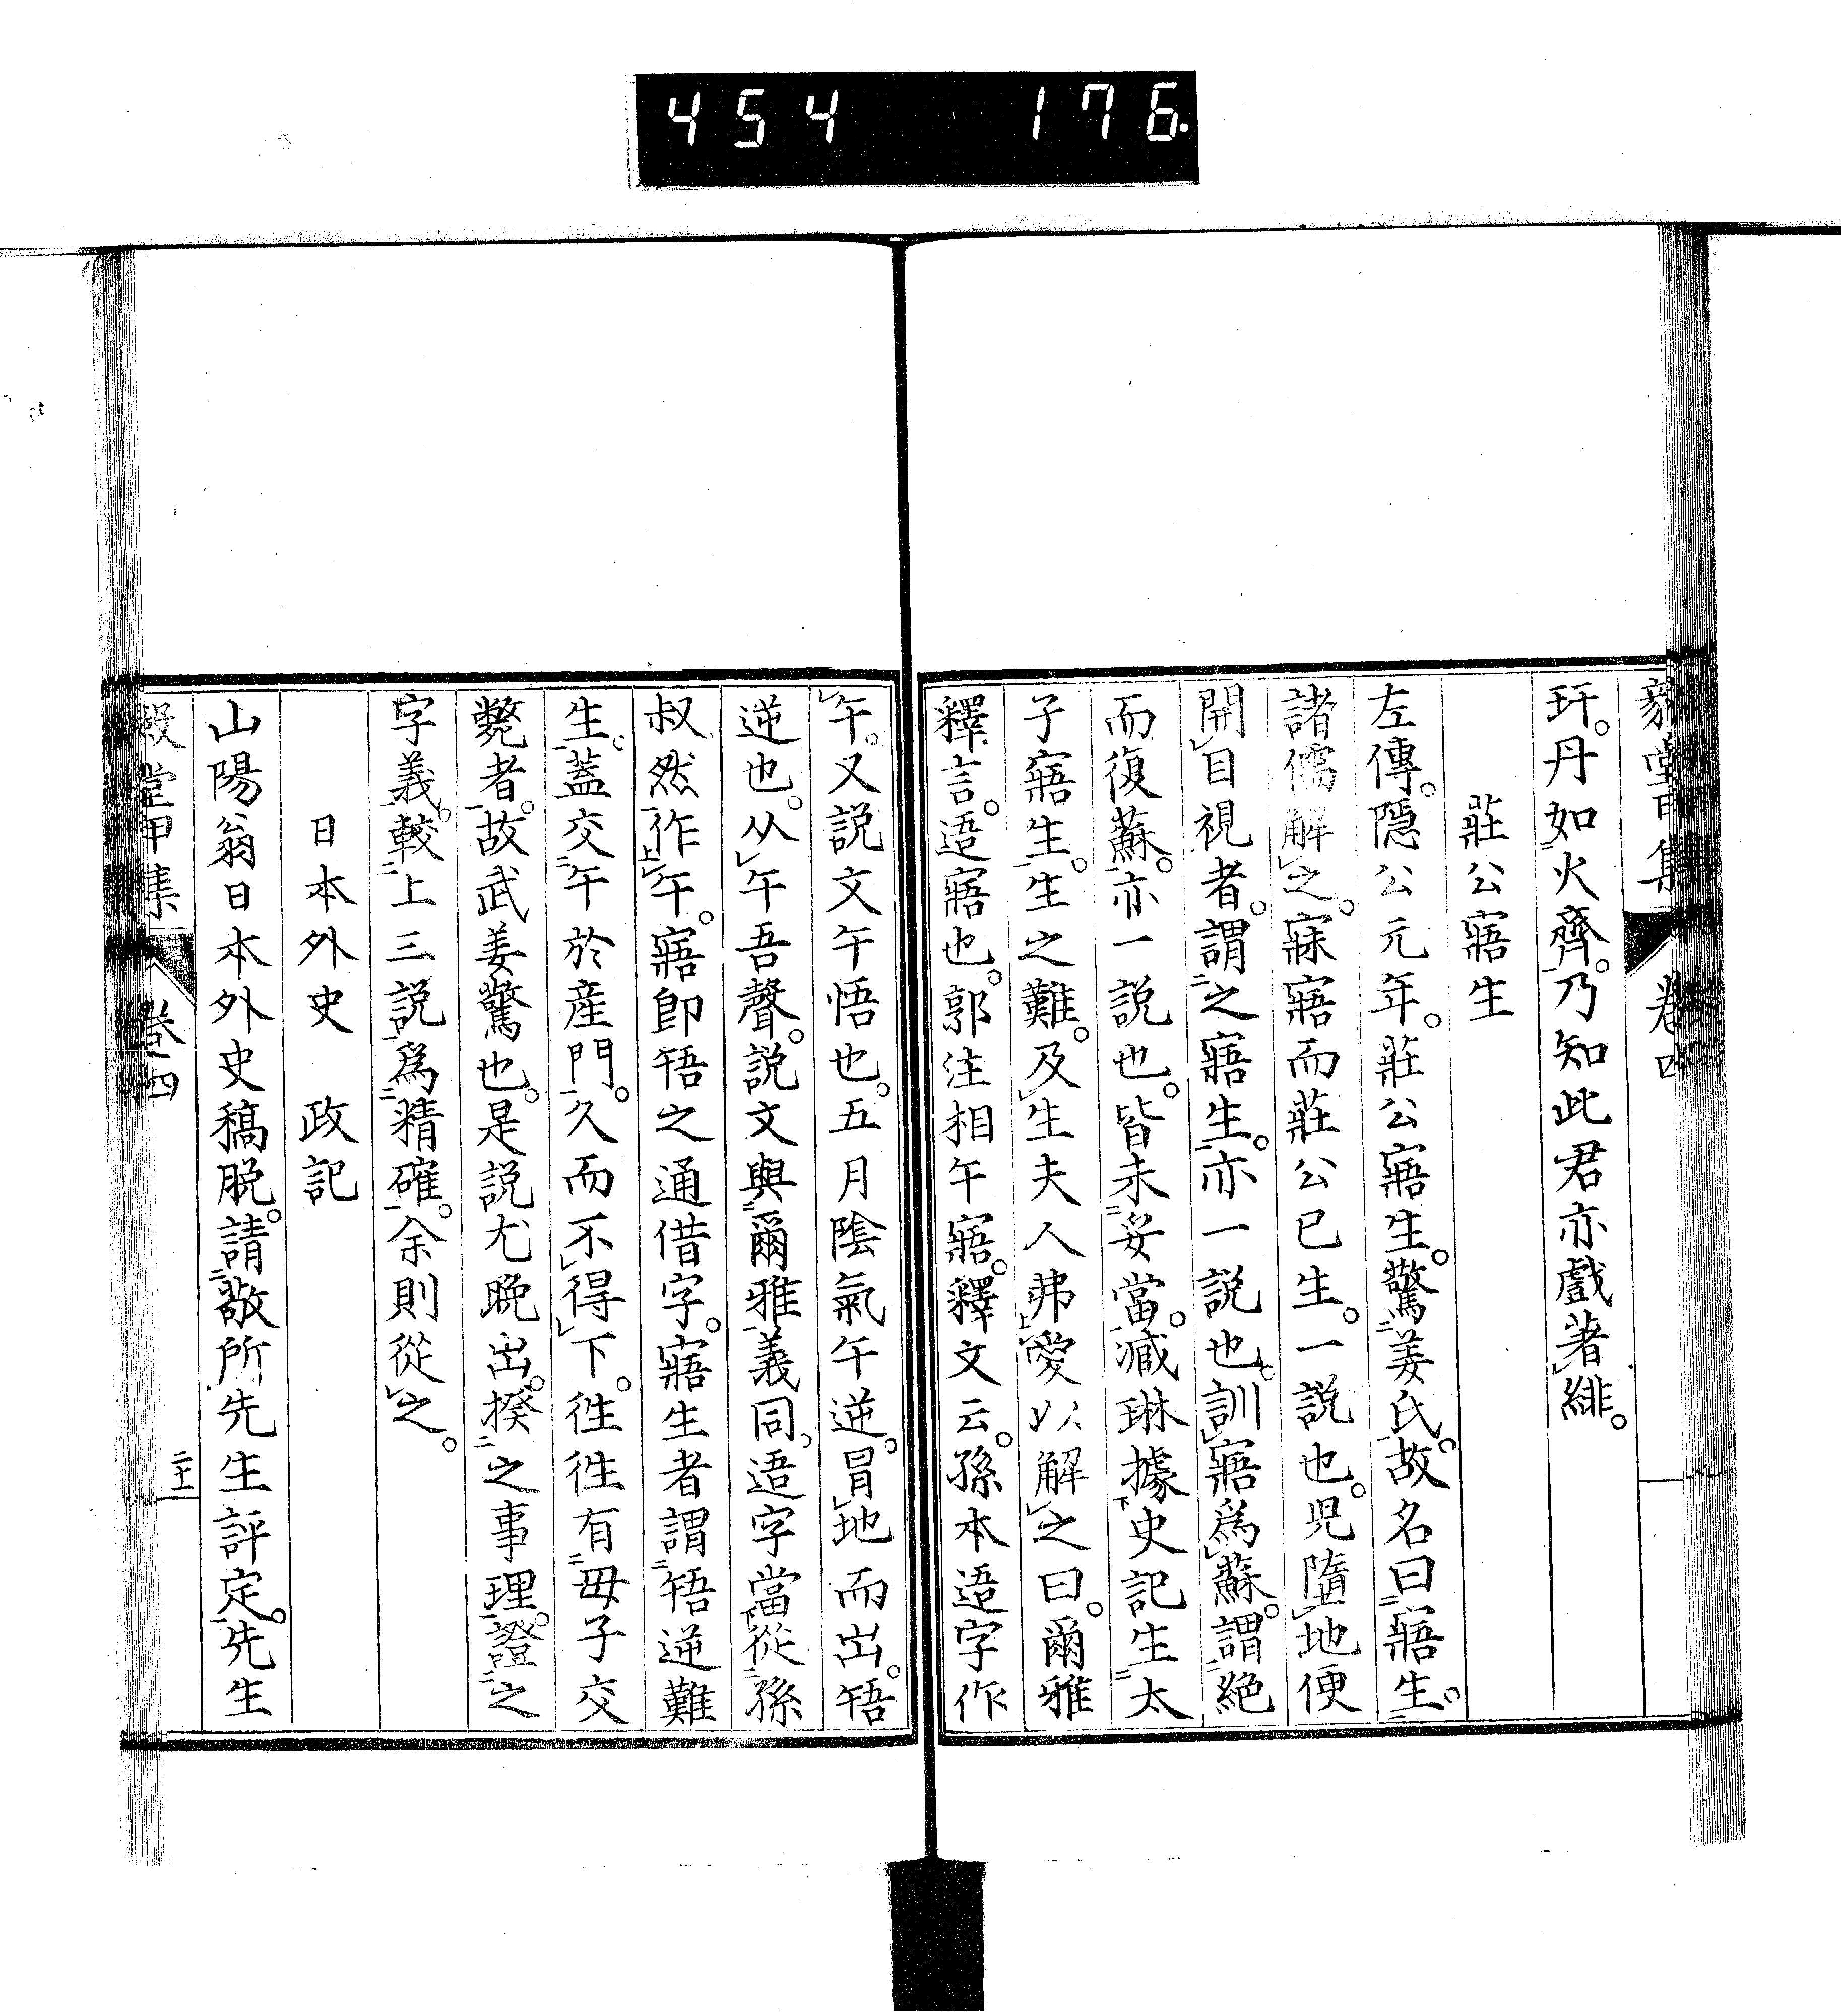 454 176.
玕。丹如火齊。乃知此君亦戲著緋。
莊公寤生
左傳。隱公元年。莊公寤生。驚姜氏。故名曰寤生。
諸儒解之。寐寤而莊公已生。一説也。兒墮地便
開目視者。謂之寤生。亦一説也。訓寤爲蘇。謂絶
而復蘇。亦一説也。皆未妥當。臧琳據史記生太
子寤生。生之難。及生夫人弗愛以解之曰。爾雅
釋言。逜寤也。郭注相午寤。釋文云。孫本逜字作
午。又説文午悟也。五月陰氣午逆。冒地而出。啎
逆也。从午吾聲。説文與爾雅義同。逜字當從孫
叔然作午。寤卽啎之通借字。寤生者謂啎逆難
生。蓋交午於産門。久而不得下。徃徃有母子交
斃者。故武姜驚也。是説尤晩出。揆之事理。證之
字義。較上三説爲精確。余則從之。
日本外史　政記
山陽翁日本外史稿脱。請敲所先生評定。先生
毅堂甲集 卷四 二十一